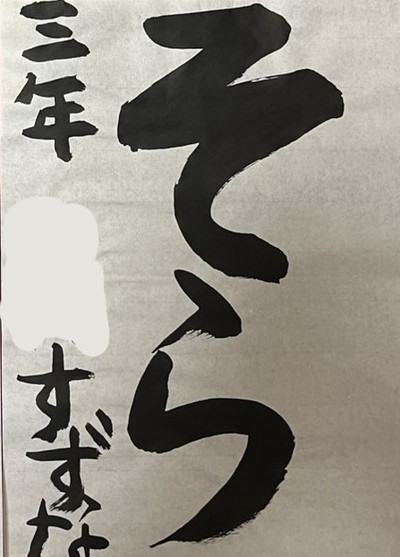 そら
三年
すずな